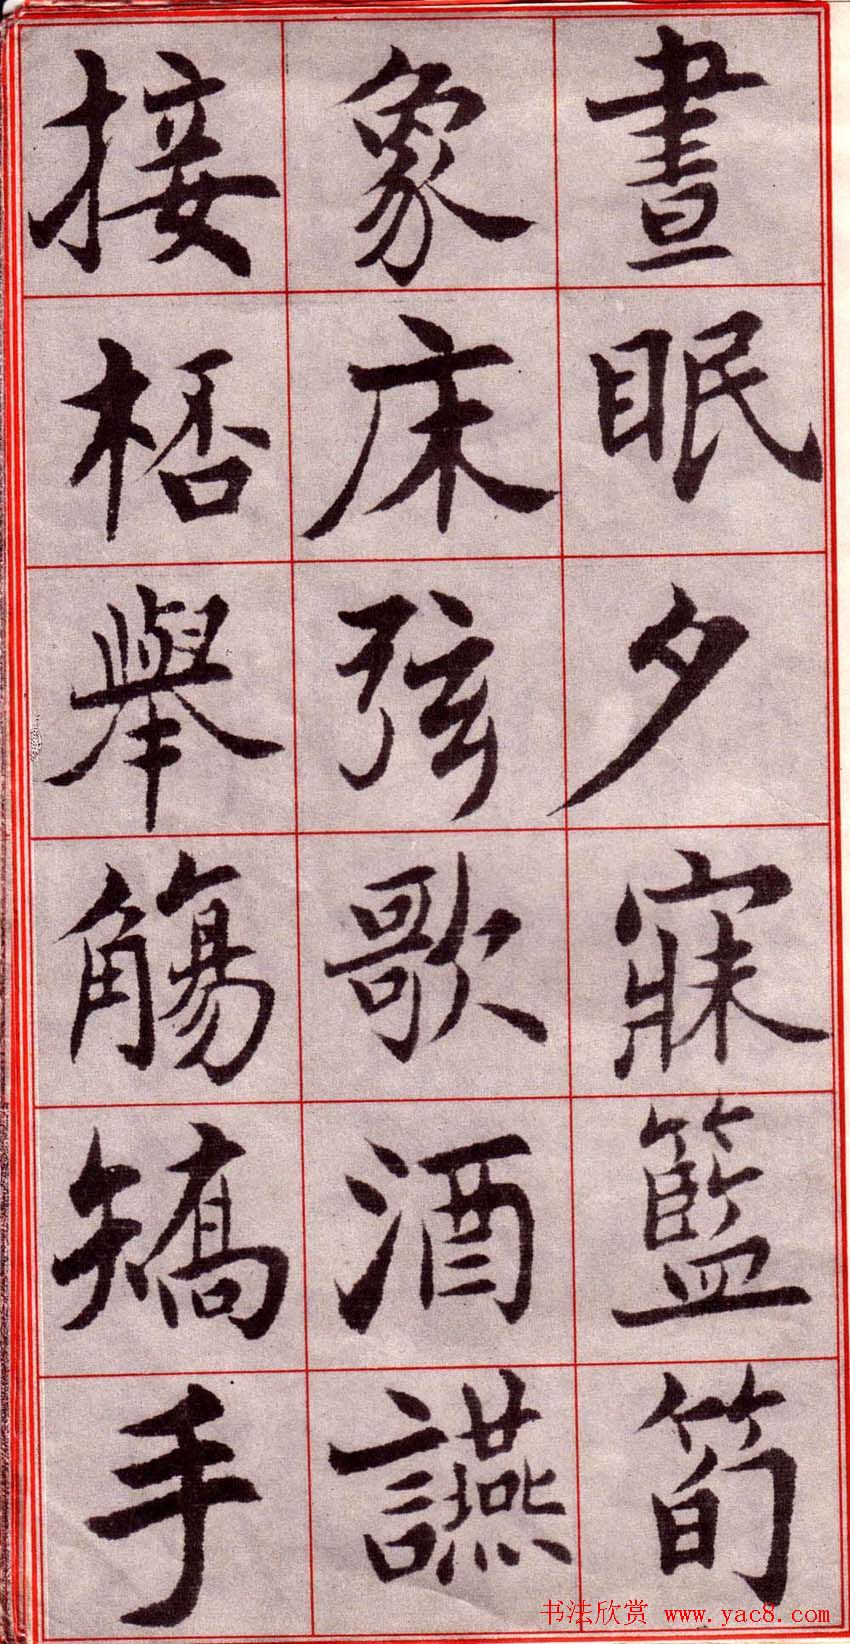 晝眠夕寐籃筍
象床弦歌酒讌
接桮舉觴矯手
书法欣赏 www.yac8.com